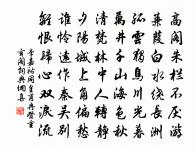 高閣朱欄不厭游
蒹葭白水繞長洲
孤雲獨鳥川光暮
萬井千山海色秋
清梵林中人轉靜
夕陽城上角偏愁
誰憐遠作秦吳別
離恨歸心雙淚流
李嘉祐同皇甫冉登重
玄閣詞典網集